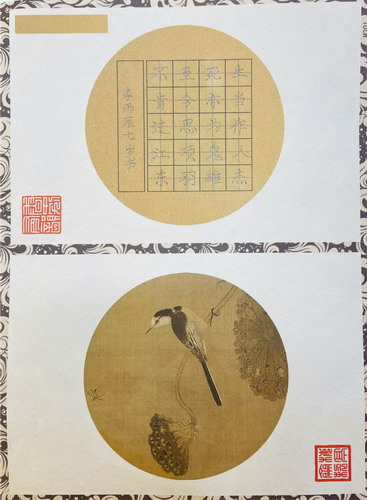 生当作人杰
死亦为鬼雄
至今思项羽
不肯过江东
李雨辰七岁书